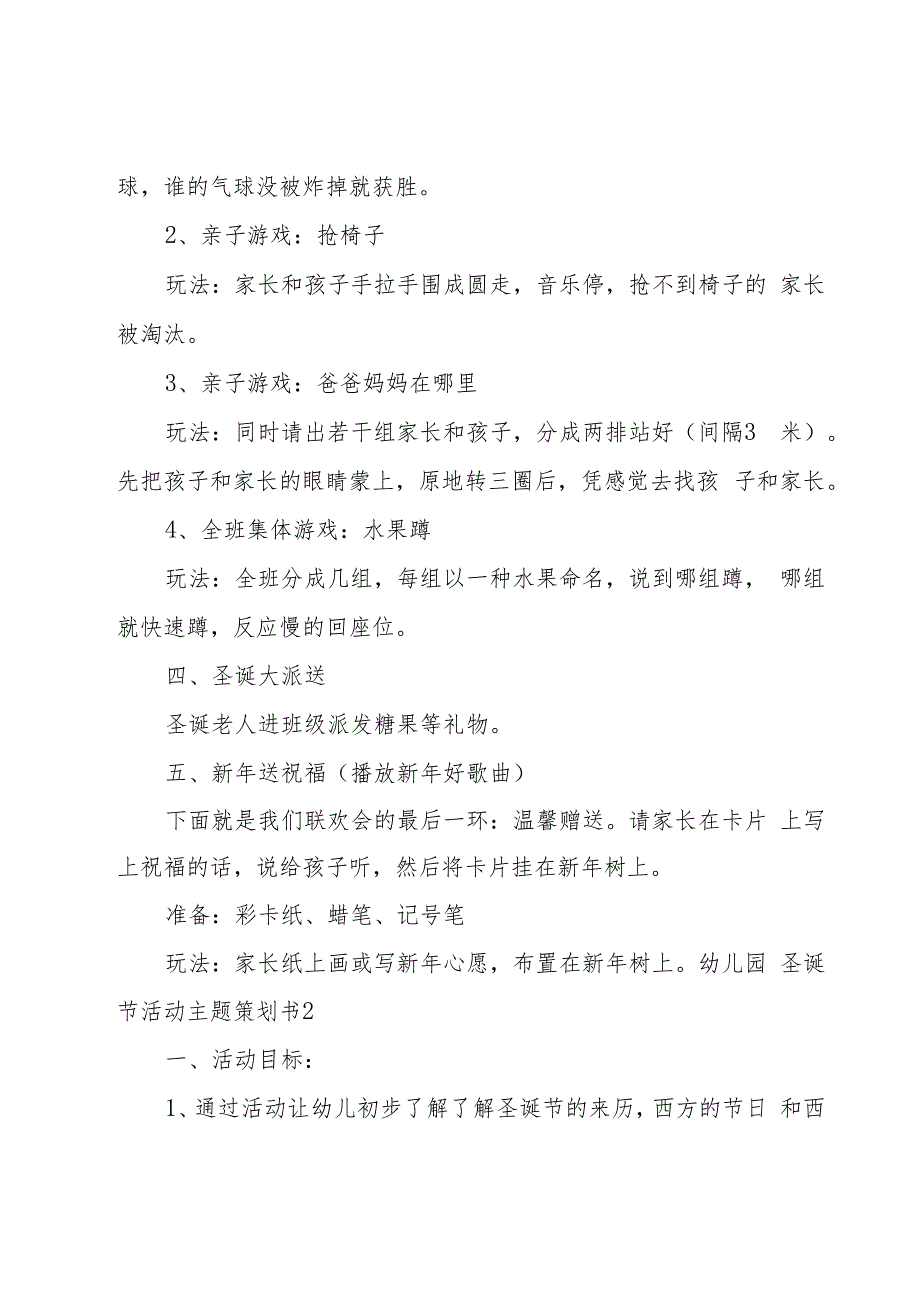 球，谁的气球没被炸掉就获胜。
2、亲子游戏：抢椅子
玩法：家长和孩子手拉手围成圆走，音乐停，抢不到椅子的 家长
被淘汰。
3、亲子游戏：爸爸妈妈在哪里
玩法：同时请出若干组家长和孩子，分成两排站好（间隔3 米）。
先把孩子和家长的眼睛蒙上，原地转三圈后，凭感觉去找孩 子和家长。
4、全班集体游戏：水果蹲
玩法：全班分成几组，每组以一种水果命名，说到哪组蹲， 哪组
就快速蹲，反应慢的回座位。
四、圣诞大派送
圣诞老人进班级派发糖果等礼物。
五、新年送祝福（播放新年好歌曲）
下面就是我们联欢会的最后一环：温馨赠送。请家长在卡片 上写
上祝福的话，说给孩子听，然后将卡片挂在新年树上。
准备：彩卡纸、蜡笔、记号笔
玩法：家长纸上画或写新年心愿，布置在新年树上。幼儿园 圣诞
节活动主题策划书2
一、活动目标：
1、通过活动让幼儿初步了解了解圣诞节的来历，西方的节日 和西